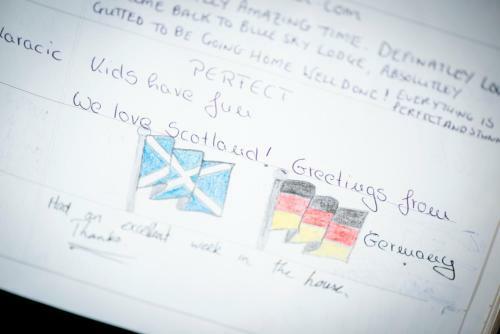 .com
AMAZING TIME. DEFINATLEY
BACK TO BLUE SKY LODGE, ABSOLUTLEY
GUTTED TO BE GOING HOME WELL DONE! EVERYTHING IS
PERFECT AND
PERFECT
Kids have fun
We love Scotland! Greetings from
Germany
Had an excellent week in the house.
Thanks